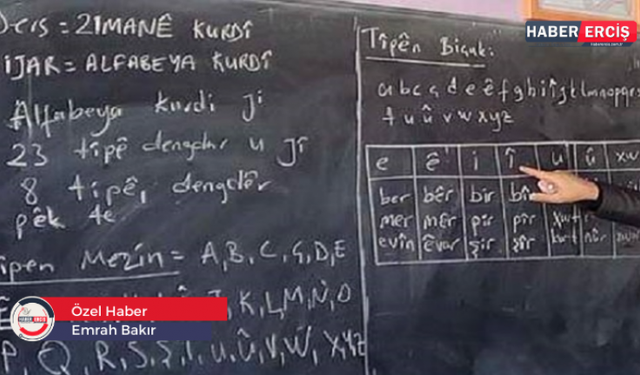 Ders = ZIMANÊ KURDÎ
IJAR = ALFABEYA KURDÎ
Alfabeya kurdi ji
23 tîpê dengdar u Jî
8 tipê, dengdêr
pêk te
Tipen Mezin = A, B, C, Ç, D, E
K, L, M, N, O
P, Q, R, S, Ş, T, U, Û, V, W, X, Y, Z
Tîpên Biçuk:
a b c ç d e ê f g h i î j k l m n o p q r s
t u û v w x y z
e ê i î u û xw
ber bêr bir bîr
mer mêr pir pîr xwt
evîn êvar şir şîr kurt nûr
HABER ERCİŞ
HABER ERCİŞ
Özel Haber
Emrah Bakır